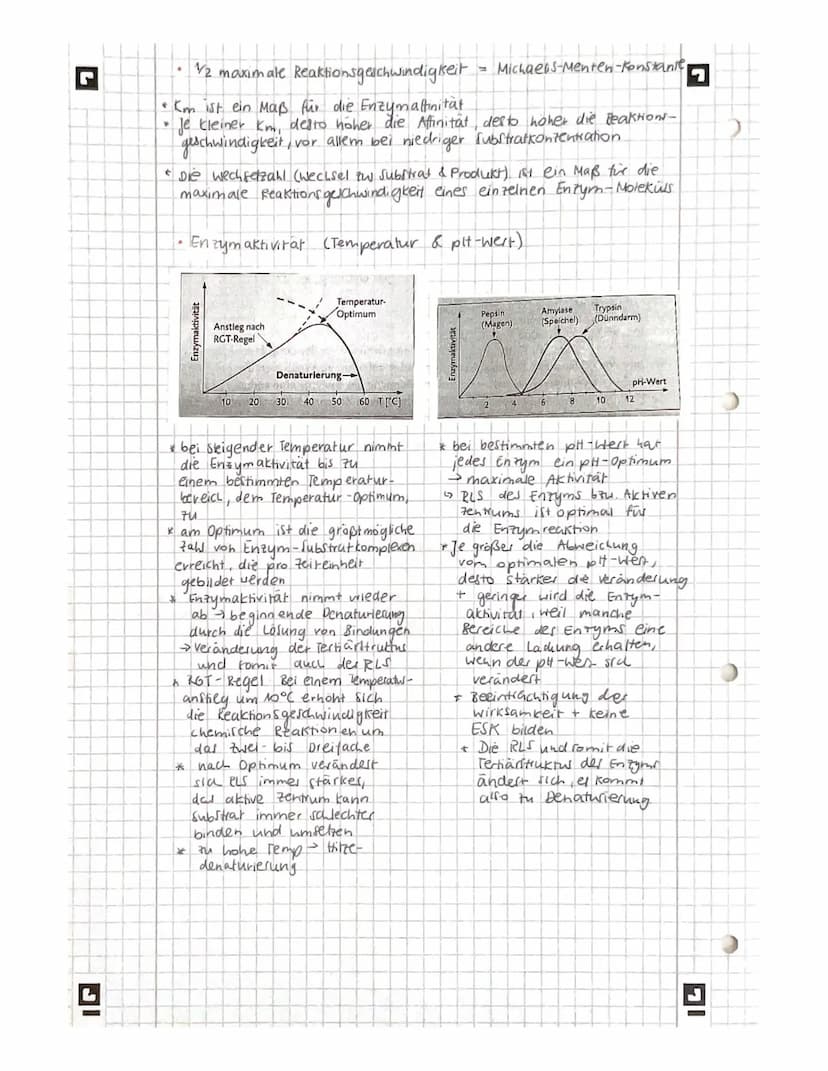 • 1/2 maximale Reaktionsgeschwindigkeit = Michaelis-Menten-Konstante
• Km ist ein Maß für die Enzymaffinität
• Je kleiner Km, desto höher die Affinität, desto höher die Reaktions-
geschwindigkeit, vor allem bei niedriger Substratkonzentration
• Die Wechselzahl (Wechsel zw. Substrat & Produkt) ist ein Maß für die
maximale Reaktionsgeschwindigkeit eines einzelnen Enzym-Moleküls
• Enzymaktivität (Temperatur & pH-Wert)
Enzymaktivität
Anstieg nach
RGT-Regel
Temperatur-
Optimum
Denaturierung
10 20 30 40 50 60 T [°C]
Enzymaktivität
Pepsin
(Magen)
Amylase
(Speichel)
Trypsin
(Dünndarm)
pH-Wert
2 4 6 8 10 12
* bei steigender Temperatur nimmt
die Enzymaktivität bis zu
einem bestimmten Temperatur-
bereich, dem Temperatur-Optimum,
zu
* am Optimum ist die größtmögliche
Zahl von Enzym-Substratkomplexen
erreicht, die pro Zeiteinheit
gebildet werden
* Enzymaktivität nimmt wieder
ab → beginnende Denaturierung
durch die Lösung von Bindungen
→ Veränderung der Tertiärstruktur
und somit auch der RLS
* RGT-Regel Bei einem Temperatur-
anstieg um 10°C erhöht sich
die Reaktionsgeschwindigkeit
chemische Reaktionen um
das zwei- bis Dreifache
* nach Optimum verändert
sich RLS immer stärker,
das aktive Zentrum kann
Substrat immer schlechter
binden und umsetzen
* zu hohe Temp → Hitze-
denaturierung
* bei bestimmten pH-Wert hat
jedes Enzym ein pH-Optimum
→ maximale Aktivität
↳ RLS des Enzyms bzw. Aktiven
Zentrums ist optimal für
die Enzymreaktion
* Je größer die Abweichung
vom optimalen pH-Wert,
desto stärker die Veränderung
+ geringer wird die Enzym-
aktivität, weil manche
Bereiche des Enzyms eine
andere Ladung erhalten,
wenn der pH-Wert sich
verändert
* Beeinträchtigung der
Wirksamkeit + keine
ESK bilden
* Die RLS und somit die
Tertiärstruktur des Enzyms
ändert sich, es kommt
also zu Denaturierung